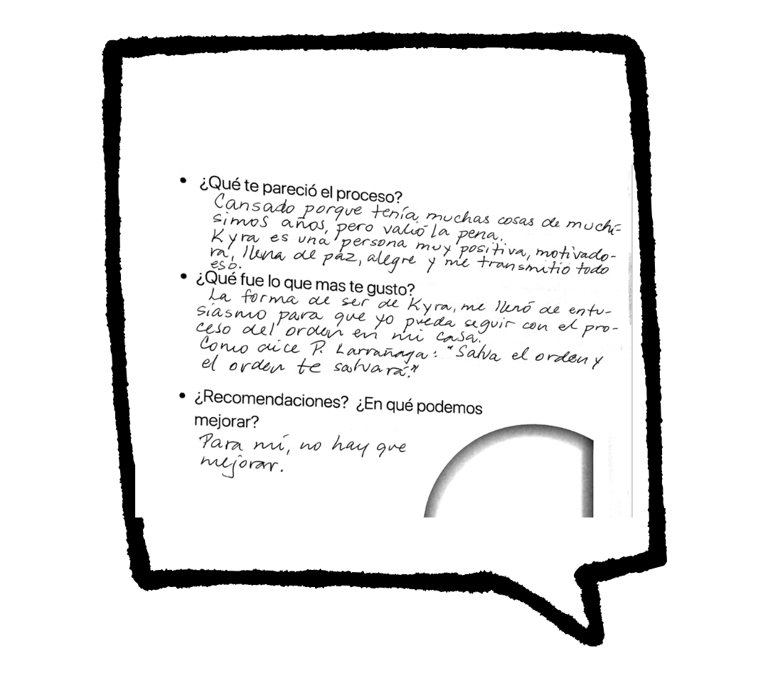 • ¿Qué te pareció el proceso?
Cansado porque tenía muchas cosas de muchí-
simos años, pero valió la pena.
Kyra es una persona muy positiva, motivado-
ra, llena de paz, alegre y me transmitio todo
eso.
• ¿Qué fue lo que mas te gusto?
La forma de ser de Kyra, me llenó de entu-
siasmo para que yo pueda seguir con el pro-
ceso del orden en mi casa.
Como dice P. Larrañaga: "Salva el orden y
el orden te salvará."
• ¿Recomendaciones? ¿En qué podemos
mejorar?
Para mí, no hay que
mejorar.